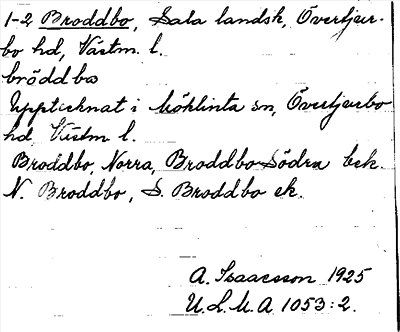 1-2 Broddbo, Sala landsk, Övertjur-
bo hd, Västm. l.
bröddba
Upptecknat i Möklinta sn, Övertjurbo
hd, Västm l.
Broddbo, Norra, Broddbo Södra bek.
N. Broddbo, S. Broddbo ek.
A. Isaacsson 1925
U.L.M.A 1053:2.